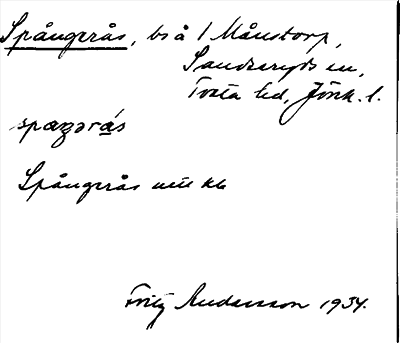 Spångerås, bs å 1 Månstorp,
Sandseryds sn,
Tveta hd, Jönk. l.
spaŋərås
Spångerås utt kb
Fritz Andersson 1934.